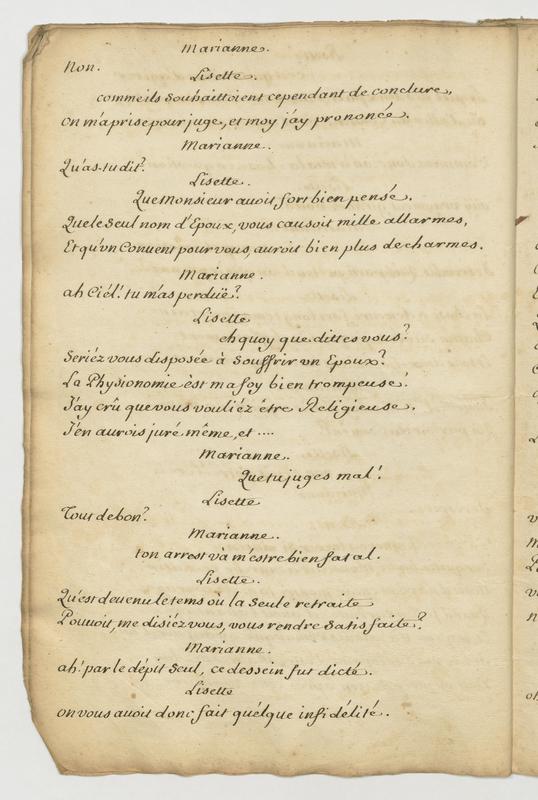 Marianne.
Non.
Lisette.
commeils souhaittoient cependant de conclure,
on m'a prise pour juge, et moy j'ay prononcé.
Marianne.
Qu'as-tu dit?
Lisette.
Que Monsieur avoit fort bien pensé.
Que le seul nom d'Epoux, vous causoit mille allarmes,
Et qu'vn Convent pour vous, auroit bien plus de charmes.
Marianne.
ah Ciel! tu m'as perduë?
Lisette
eh quoy que dittes vous?
Seriéz vous disposée à souffrir vn Epoux?
La Physionomie èst ma foy bien trompeuse!
J'ay crû que vous vouliéz être Religieuse.
J'en aurois juré même, et ....
Marianne.
Que tu juges mal!
Lisette
Tout de bon?
Marianne.
ton arrest và m'estre bien fatal.
Lisette.
Qu'est devenu le tems où la seule retraite
Pouvoit, me disiéz vous, vous rendre satisfaite?
Marianne.
ah! par le dépit seul, ce dessein fut dicté.
Lisette
on vous avoit donc fait quélque infidélité.